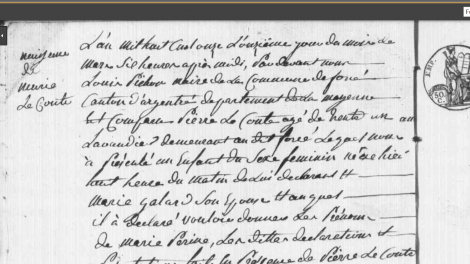 naissance
de
marie
Le Conte
L'an mil huit cent onze L'onzième jour du mois de
mars Six heures après midi, Pardevant nous
Louis Pichon maire de la Commune de forcé
Canton d'argentré département de la mayenne
Est Comparu Pierre Le Conte agé de trente un an
demeurant au dit forcé Lequel nous
à Présenté un Enfant du Sexe feminin née hier
huit heure du matin de Lui déclarant Et
marie galard Son Epouse
il à Declaré vouloir donner Les Prénoms
de marie Perine, Les dittes declarations et
Présence de Pierre Le Conte
50